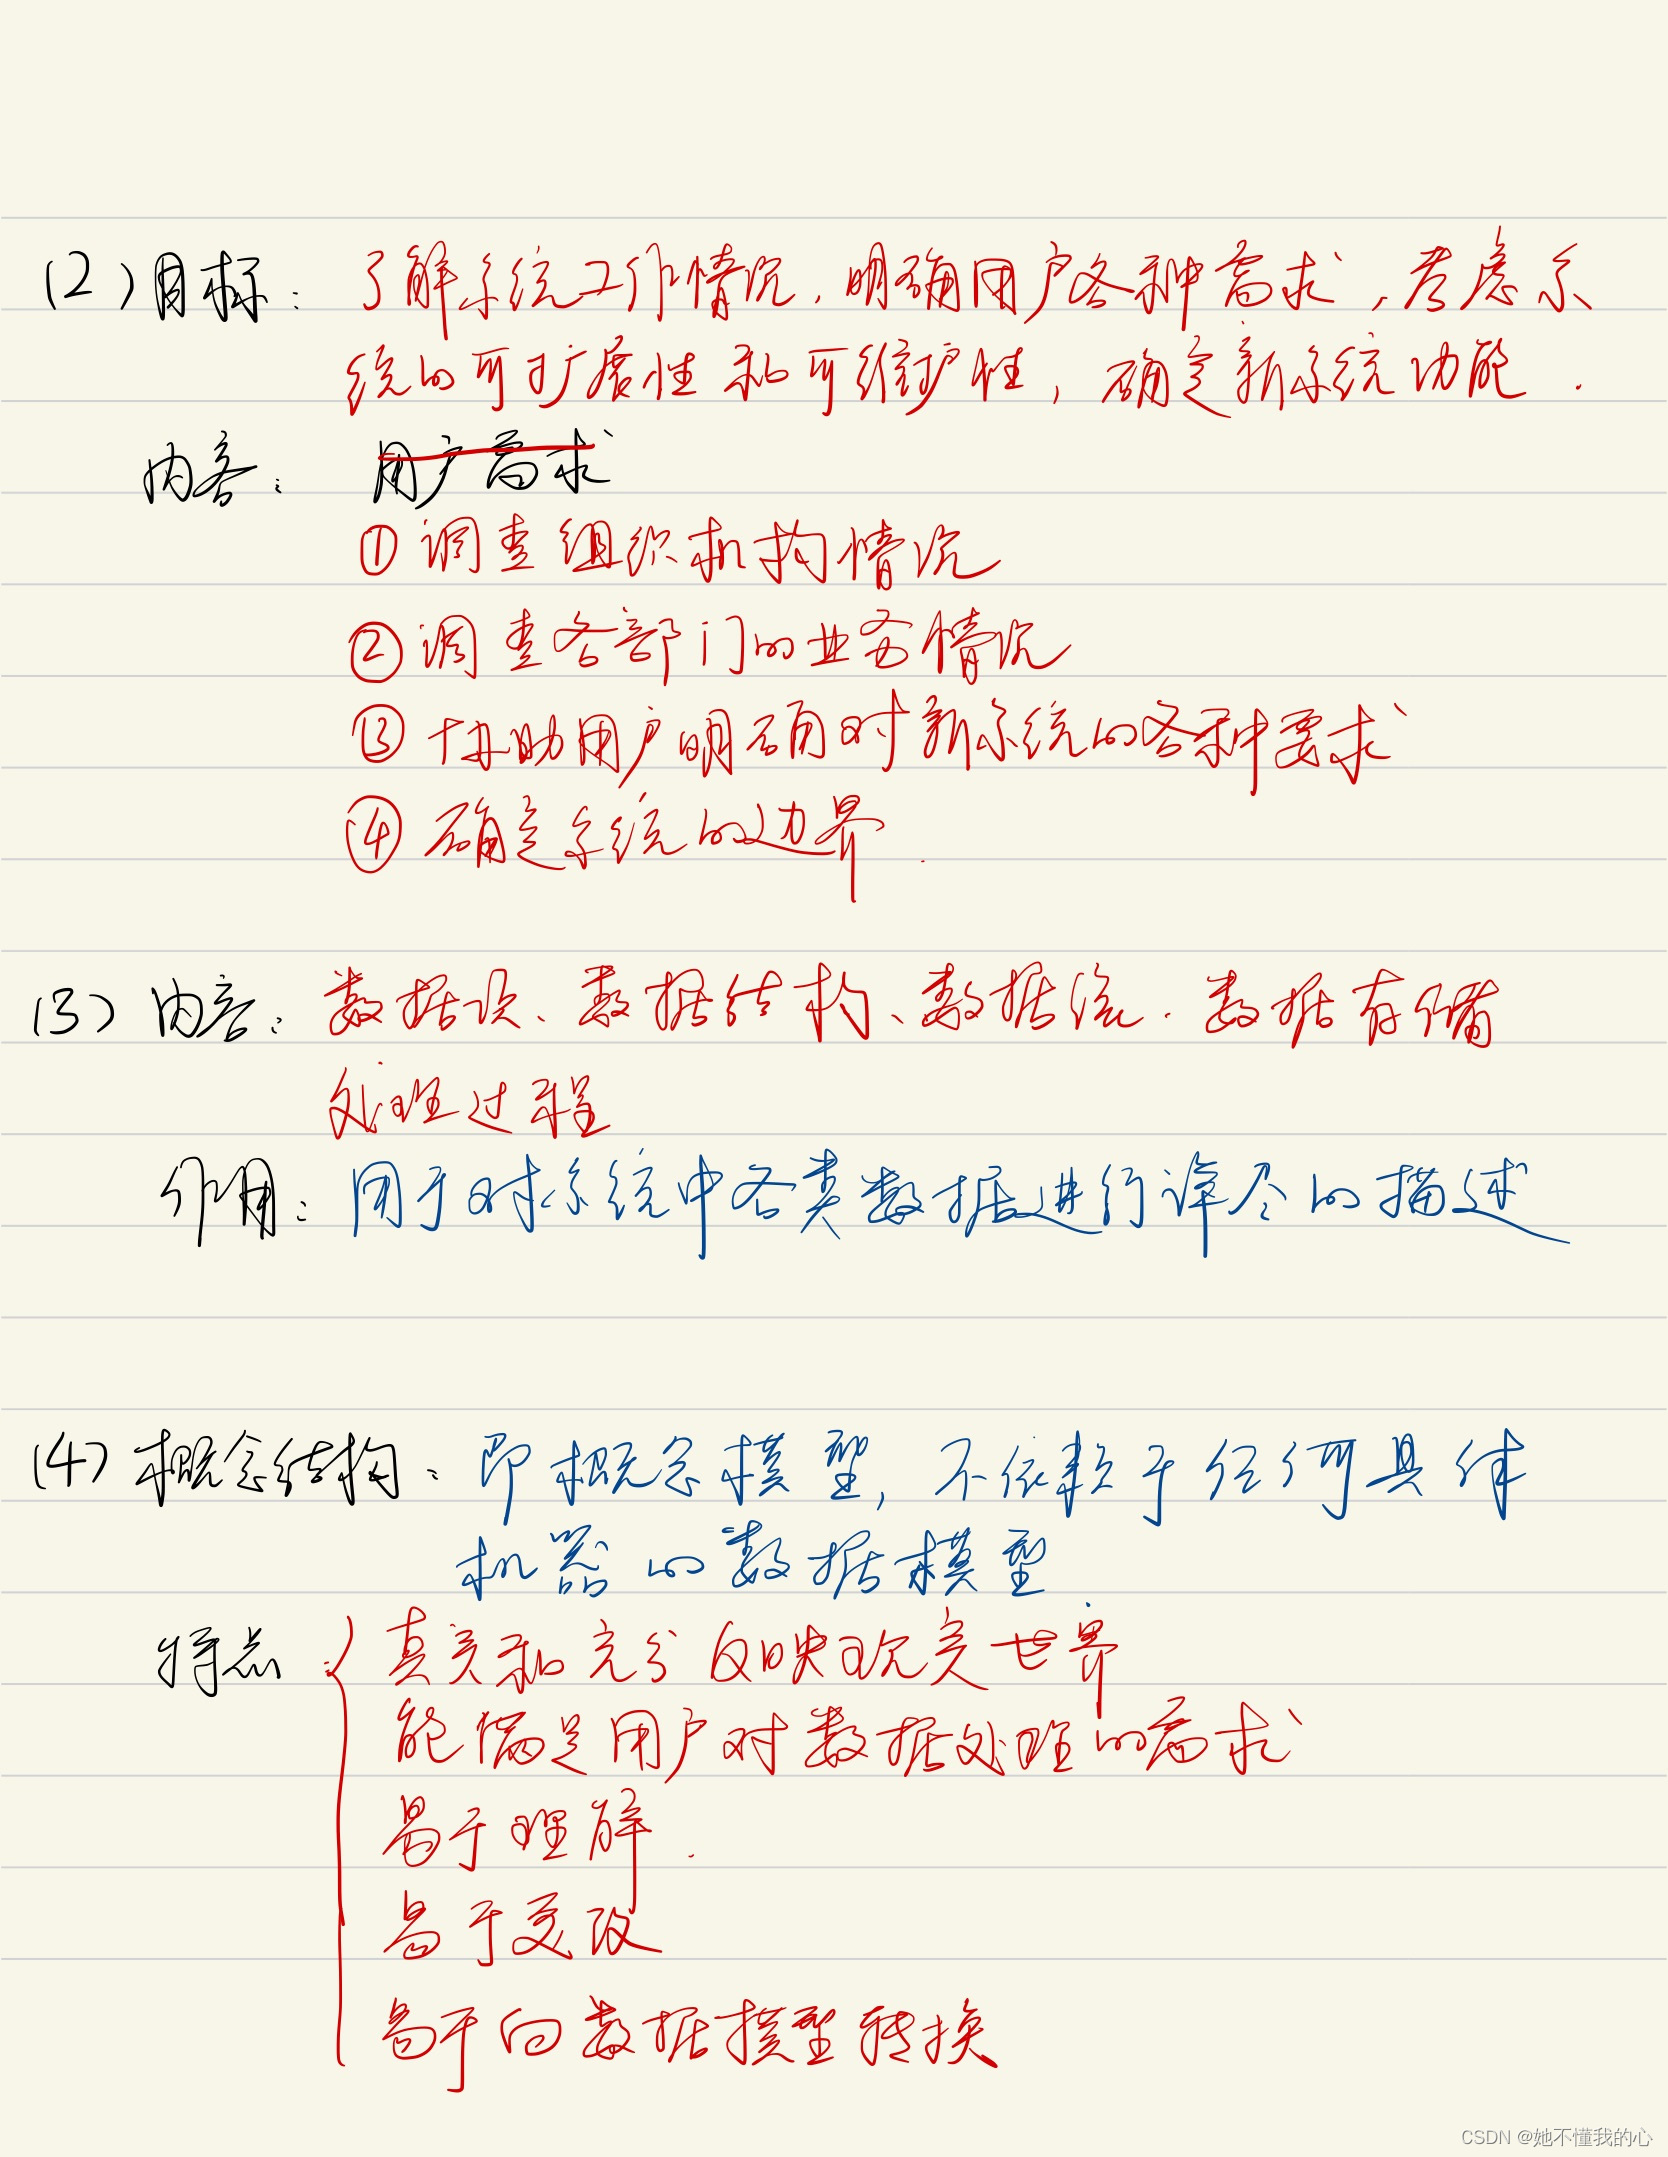 (2)目标：了解系统工作情况，明确用户各种需求，考虑系
统的可扩展性和可维护性，确定新系统功能.
内容：用户需求
①调查组织机构情况
②调查各部门的业务情况
③协助用户明确对新系统的各种要求
④确定系统的边界.
(3)内容：数据项、数据结构、数据流.数据存储
处理过程
作用：用于对系统中各类数据进行详尽的描述
(4)概念结构：即概念模型，不依赖于任何具体
机器的数据模型
特点：真实和充分反映现实世界
能满足用户对数据处理的需求
易于理解.
易于更改
易于向数据模型转换
CSDN @她不懂我的心